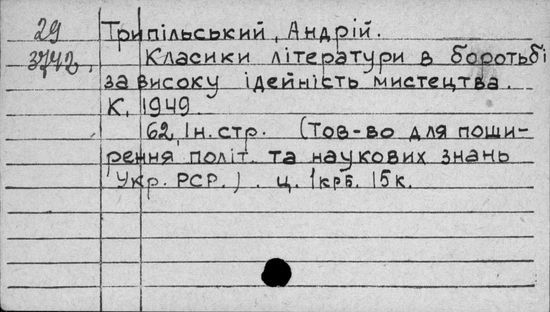 29 Трипільський, Андрій.
3742, Класики літератури в боротьбі
за високу ідейність мистецтва.
К, 1949.
62, Ін. стр. (Тов-во для поши-
рення політ. та наукових знань
Укр. РСР.). ц. 1крб. 15к.